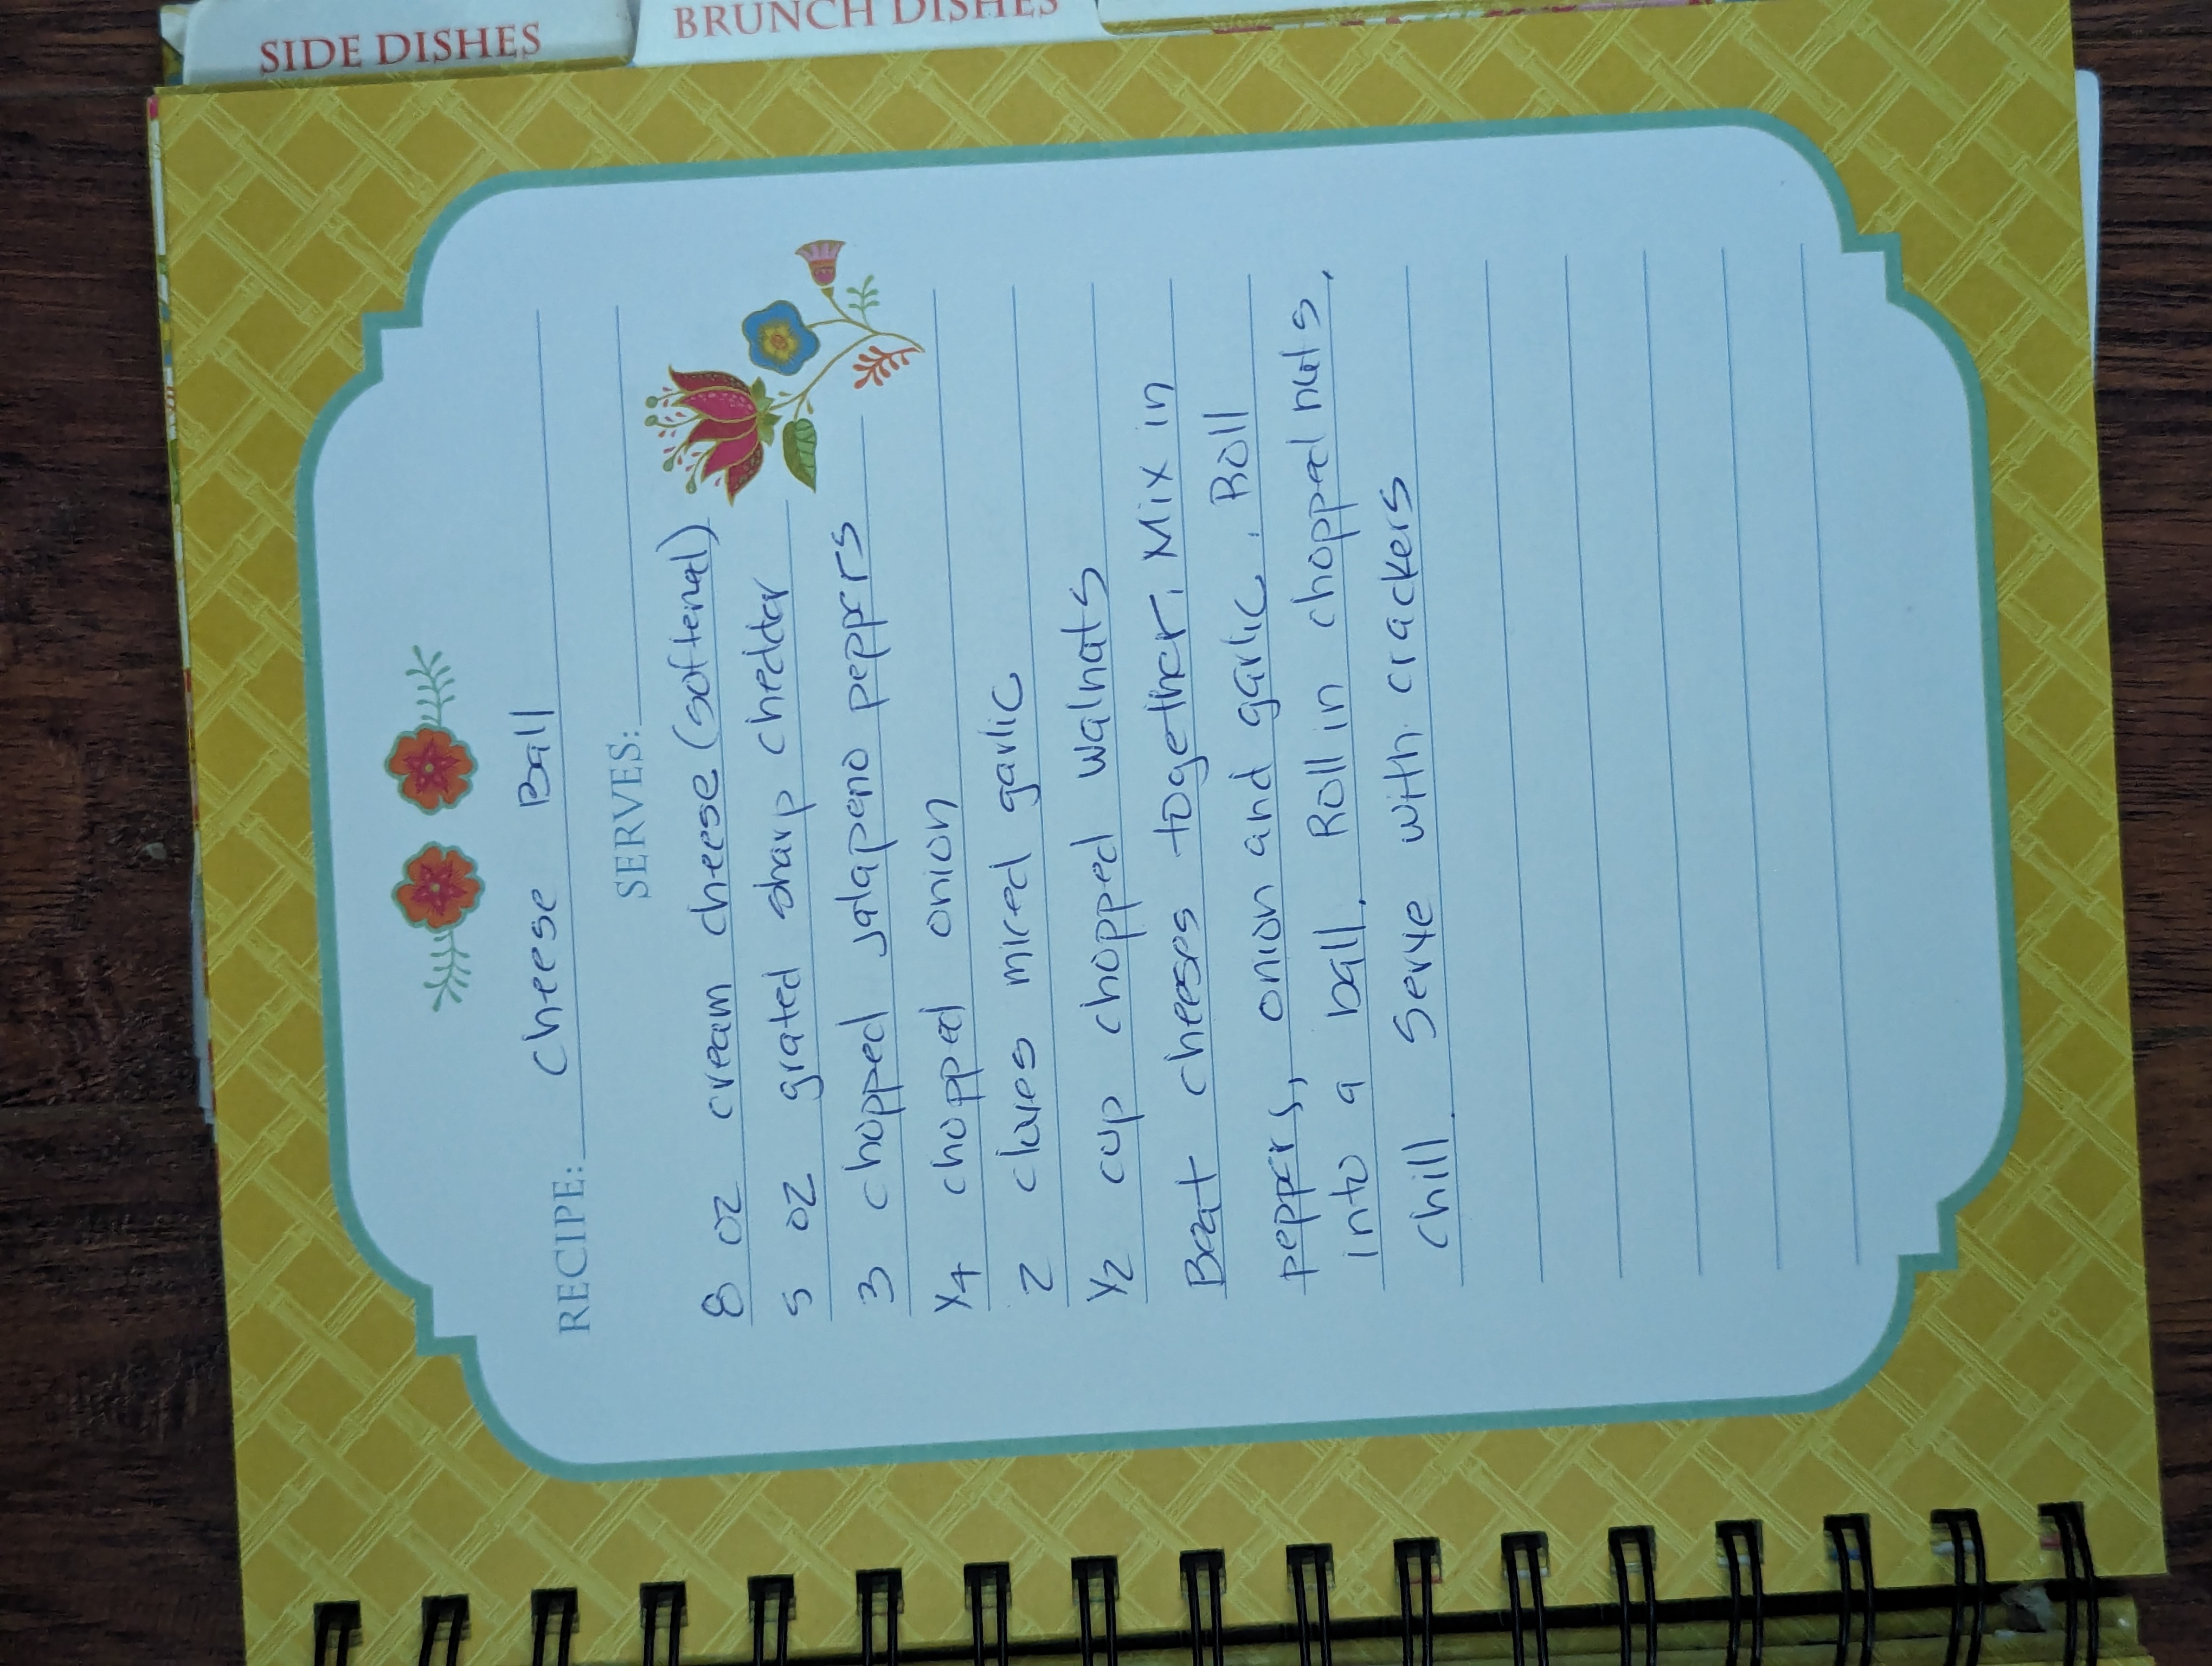 SIDE DISHES
BRUNCH DISHES
RECIPE: Cheese Ball
SERVES:
8 oz cream cheese (softened)
5 oz grated sharp cheddar
3 chopped jalapeno peppers
1/4 chopped onion
2 cloves minced garlic
1/2 cup chopped walnuts
Beat cheeses together. Mix in
peppers, onion and garlic. Roll
into a ball. Roll in chopped nuts.
Chill. Serve with crackers